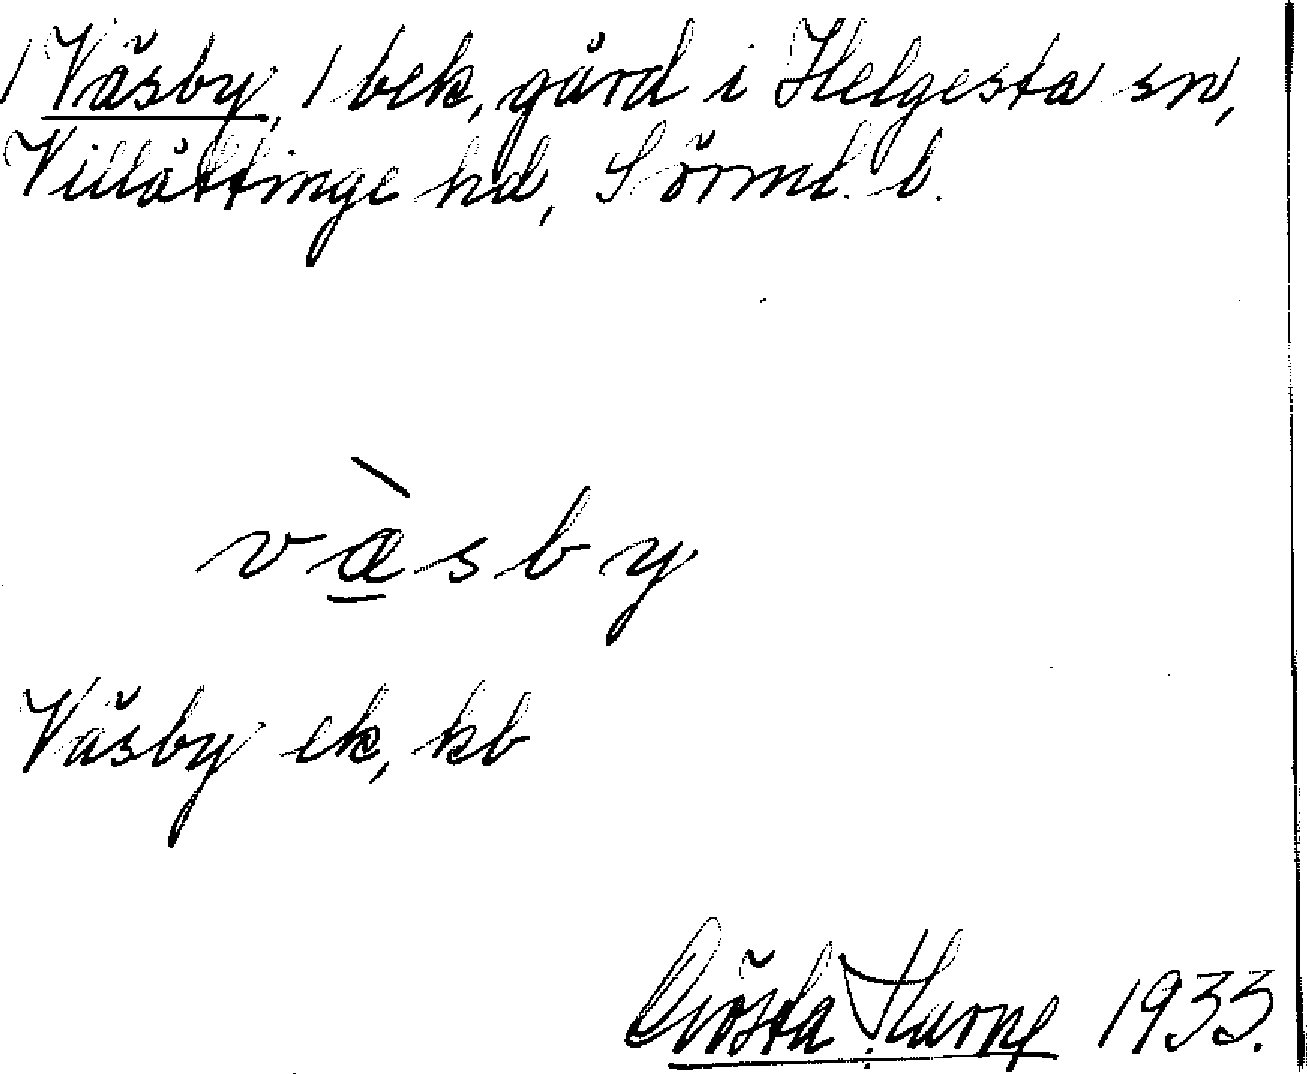 1 Väsby, 1 bek, gård i Helgesta sn,
Villåttinge hd, Sörml. l.
væ̀sby
Väsby ek, kb
Gösta 1933.